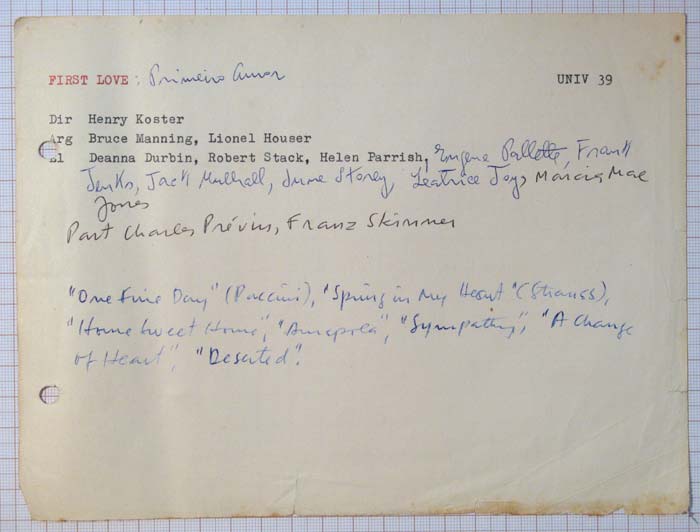 FIRST LOVE : Primeiro Amor UNIV 39
Dir Henry Koster
Arg Bruce Manning, Lionel Houser
El Deanna Durbin, Robert Stack, Helen Parrish, Eugene Pallette, Frank
Jenks, Jack Mulhall, June Storey, Leatrice Joy, Marcia Mae
Jones
Part Charles Prévin, Franz Skinner
"One Fine Day" (Puccini), "Spring in My Heart" (Strauss),
"Home Sweet Home", "Amapola", "Sympathy", "A Change
of Heart", "Deserted".